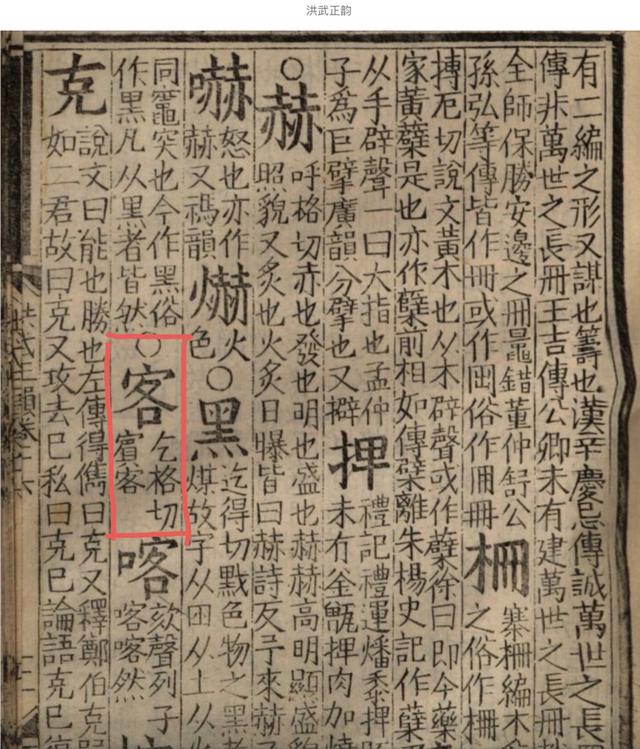 洪武正韵
有二編之形又謀也籌也漢辛慶忌傳誠萬世之長
傳非萬世之長冊王吉傳公卿未有建萬世之長冊
全師保勝安邊之冊鼂錯董仲舒公
孫弘等傳皆作冊或作𠕋俗作冊冊
柵
寨柵編木
之俗作柵
摶戹切說文黃木也从木辟聲或作蘗徐曰即今藥
家黃蘗是也亦作蘗前相如傳蘗離朱楊史記作蘗
从手辟聲一曰大指也孟仲
子為巨擘廣韻分擘也又擗
捭
禮記禮運燔黍捭
未有釜甑捭肉加燒
○赫
呼格切赤也發也明也盛也赫赫高明顯盛
照貌又炙也火炙曰曝皆曰赫詩反予來赫
嚇
怒也亦作
赫又禡韻
爀
火
色
○黑
迄得切黓色物之黑
煤故字从田从土从
同竈突也今作黑俗
作黒凡从黒者皆然
○客
乞格切
賓客
喀
欬聲列子
喀喀然
克
說文曰能也勝也左傳得儁曰克又釋鄭伯克
如二君故曰克又攻去已私曰克已論語克已
洪武正韻卷十六